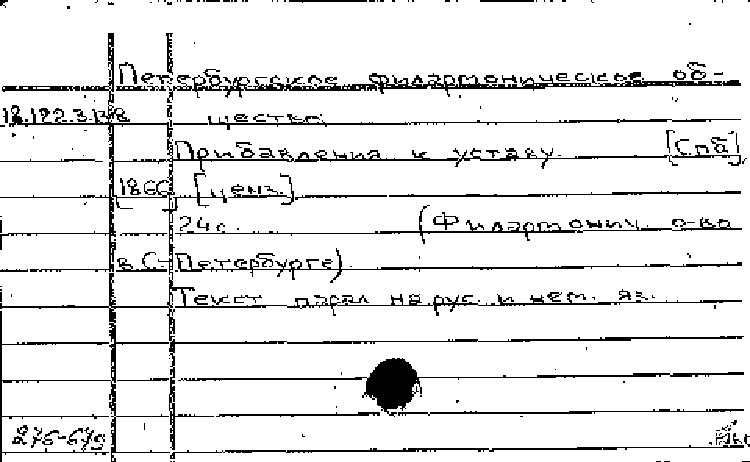 Петербургское филармоническое об-
18.192.3.138 щество
Прибавления к уставу [Спб],
[1866] [ценз.]
24с. (Филармонич. о-во
в С-Петербурге)
Текст парал на рус. и нем. яз.
276-679